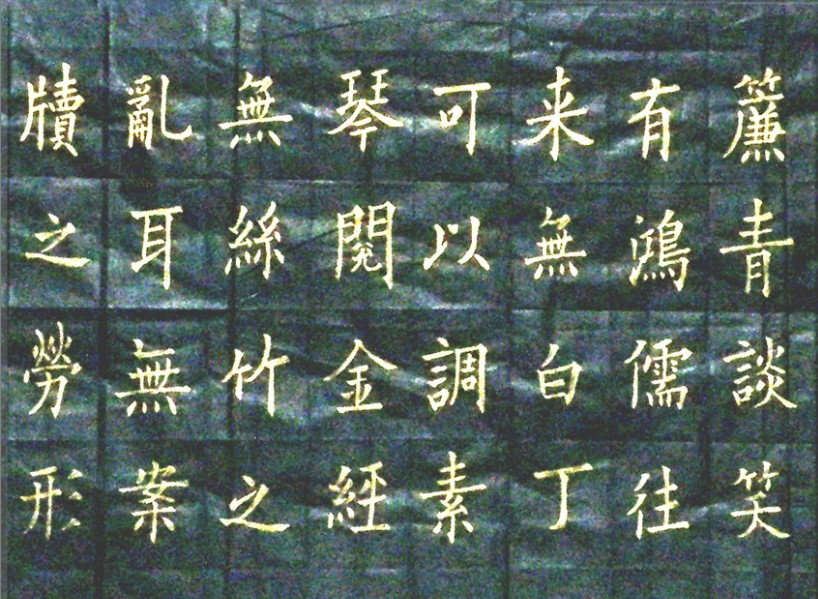 簾青談笑
有鴻儒往
来無白丁
可以調素
琴閱金經
無絲竹之
亂耳無案
牘之勞形